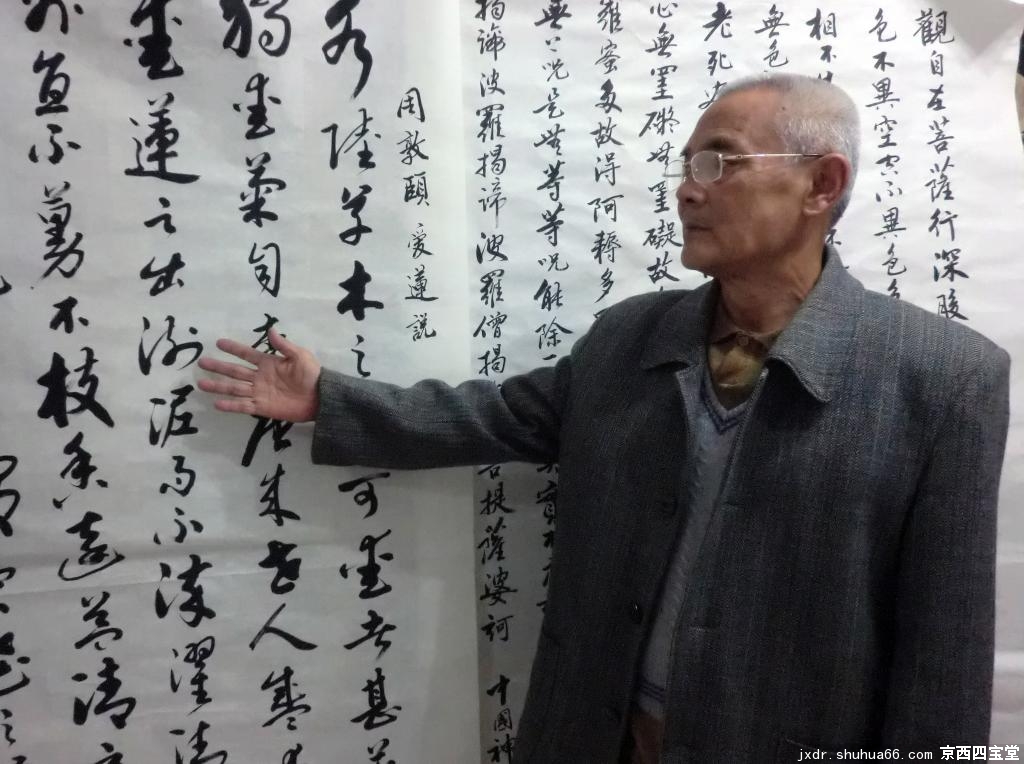 觀自在菩薩行深般
色不異空空不異色
相不
無色
老死
心無罣礙無罣礙故
羅蜜多故得阿耨多
無上咒是無等等咒能除一 實
揭諦波羅揭諦波羅僧揭 菩提薩婆訶 中國神
周敦頤 愛蓮說
水陸草木之 可愛者甚
獨愛菊自李唐来世人盛
愛蓮之出淤泥而不染濯清
外直不蔓不枝香遠益清
jxdr.shuhua66.com 京西四宝堂